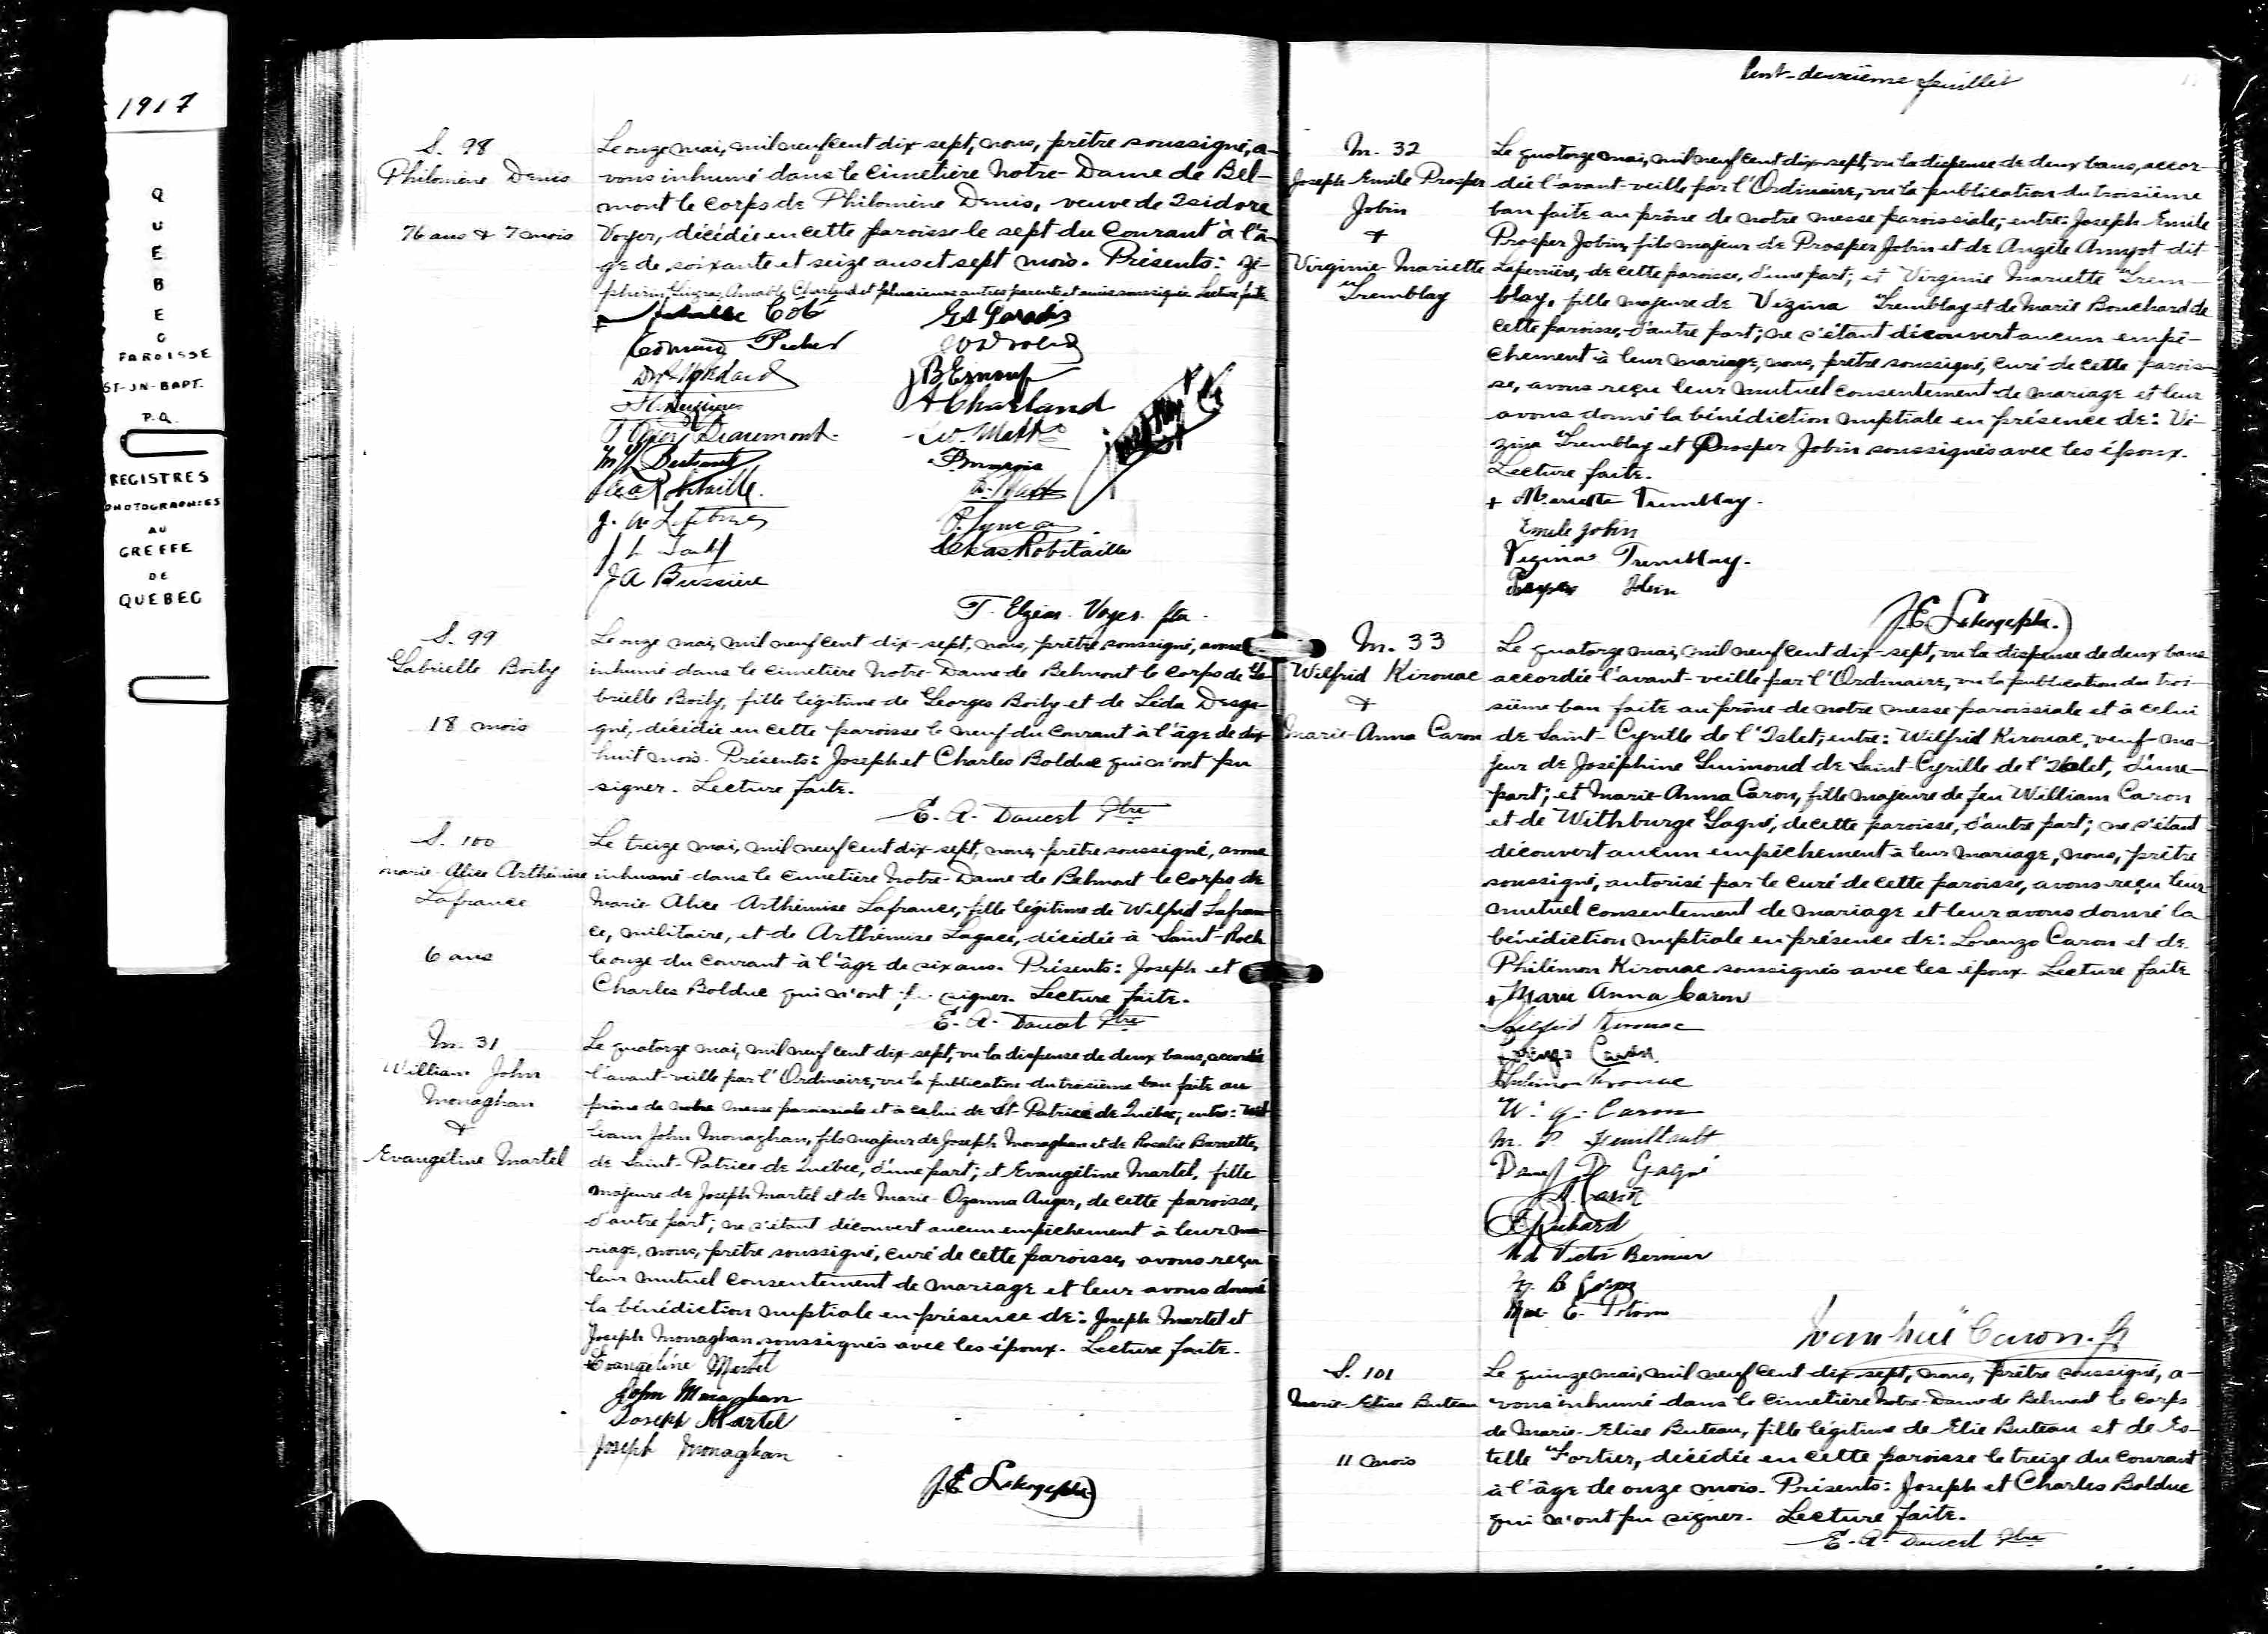 1917
QUEBEC
PAROISSE
ST-JN-BAPT.
P.Q.
REGISTRES
PHOTOGRAPHIES
AU
GREFFE
DE
QUEBEC
S. 98
Philomène Denis
76 ans & 7 mois
Le onze mai, mil neuf cent dix-sept, nous, prêtre soussigné, a-
vons inhumé dans le cimetière Notre-Dame de Bel-
mont le corps de Philomène Denis, veuve de Isidore
Voyer, décédée en cette paroisse le sept du courant à l'â-
ge de soixante et seize ans et sept mois. Présents: Zé-
phirin Gingras, Amable Charland et plusieurs autres parents et amis soussignés. Lecture faite.
Coté
G A Paradis
Edmund Picher
J B Esnouf
A Charland
Beaumont
W. Matte
Bertrand
Robitaille
J. A. Lefebvre
Chas Robitaille
J A Bussière
T. Elzéar Voyer ptre.
S. 99
Gabrielle Boily
18 mois
Le onze mai, mil neuf cent dix-sept, nous, prêtre soussigné, avons
inhumé dans le cimetière Notre-Dame de Belmont le corps de Ga-
brielle Boily, fille légitime de Georges Boily et de Léda Desga-
gné, décédée en cette paroisse le neuf du courant à l'âge de dix-
huit mois. Présents: Joseph et Charles Bolduc qui n'ont pu
signer. Lecture faite.
E. A. Doucet Ptre
S. 100
Marie-Alice Arthémise
Lafrance
6 ans
Le treize mai, mil neuf cent dix-sept, nous, prêtre soussigné, avons
inhumé dans le cimetière Notre-Dame de Belmont le corps de
Marie-Alice-Arthémise Lafrance, fille légitime de Wilfrid Lafran-
ce, militaire, et de Arthémise Lagacé, décédée à Saint-Roch
le onze du courant à l'âge de six ans. Présents: Joseph et
Charles Bolduc qui n'ont pu signer. Lecture faite.
E. A. Doucet Ptre
M. 31
William John
Monaghan
&
Evangéline Martel
Le quatorze mai, mil neuf cent dix-sept, vu la dispense de deux bans, accordée
l'avant-veille par l'Ordinaire, vu la publication du troisième ban faite au
prône de notre messe paroissiale et à celui de St-Patrice de Québec, entre: Wil-
liam John Monaghan, fils majeur de Joseph Monaghan et de Rosalie Barrette,
de Saint-Patrice de Québec, d'une part; et Evangéline Martel, fille
majeure de Joseph Martel et de Marie-Ozanna Auger, de cette paroisse,
d'autre part; ne s'étant découvert aucun empêchement à leur ma-
riage, nous, prêtre soussigné, curé de cette paroisse, avons reçu
leur mutuel consentement de mariage et leur avons donné
la bénédiction nuptiale en présence de: Joseph Martel et
Joseph Monaghan soussignés avec les époux. Lecture faite.
Evangéline Martel
John Monaghan
Joseph Martel
Joseph Monaghan
Cent-deuxième feuillet
M. 32
Joseph Emile Prosper
Jobin
&
Virginie-Mariette
Tremblay
Le quatorze mai, mil neuf cent dix-sept, vu la dispense de deux bans, accor-
dée l'avant-veille par l'Ordinaire, vu la publication du troisième
ban faite au prône de notre messe paroissiale, entre: Joseph Emile
Prosper Jobin, fils majeur de Prosper Jobin et de Angèle Amyot dit
Laferrière, de cette paroisse, d'une part; et Virginie Mariette Trem-
blay, fille majeure de Vezina Tremblay et de Marie Bouchard de
cette paroisse, d'autre part; ne s'étant découvert aucun empê-
chement à leur mariage, nous, prêtre soussigné, curé de cette parois-
se, avons reçu leur mutuel consentement de mariage et leur
avons donné la bénédiction nuptiale en présence de: Ve-
zina Tremblay et Prosper Jobin soussignés avec les époux.
Lecture faite.
+ Mariette Tremblay.
Emile Jobin
Vezina Tremblay.
Prosper Jobin
M. 33
Wilfrid Kirouac
&
Marie-Anna Caron
Le quatorze mai, mil neuf cent dix-sept, vu la dispense de deux bans
accordée l'avant-veille par l'Ordinaire, vu la publication du troi-
sième ban faite au prône de notre messe paroissiale et à celui
de Saint-Cyrille de l'Islet; entre: Wilfrid Kirouac, veuf ma-
jeur de Joséphine Guimond de Saint-Cyrille de l'Islet, d'une
part; et Marie-Anna Caron, fille majeure de feu William Caron
et de Withburge Gagné, de cette paroisse, d'autre part; ne s'étant
découvert aucun empêchement à leur mariage, nous, prêtre
soussigné, autorisé par le curé de cette paroisse, avons reçu leur
mutuel consentement de mariage et leur avons donné la
bénédiction nuptiale en présence de: Lorenzo Caron et de
Philémon Kirouac soussignés avec les époux. Lecture faite
+ Marie Anna Caron
Wilfrid Kirouac
Lorenzo Caron
Philémon Kirouac
W. G. Caron
M. P. Feuiltault
D Gagné
Richard
Md Victor Bernier
Mme E. Potvin
Ivanhoë Caron. Ptr
S. 101
Marie-Elise Buteau
11 mois
Le quinze mai, mil neuf cent dix-sept, nous, prêtre soussigné, a-
vons inhumé dans le cimetière Notre-Dame de Belmont le corps
de Marie-Elise Buteau, fille légitime de Elie Buteau et de Es-
telle Fortier, décédée en cette paroisse le treize du courant
à l'âge de onze mois. Présents: Joseph et Charles Bolduc
qui n'ont pu signer. Lecture faite.
E. A. Doucet Ptre